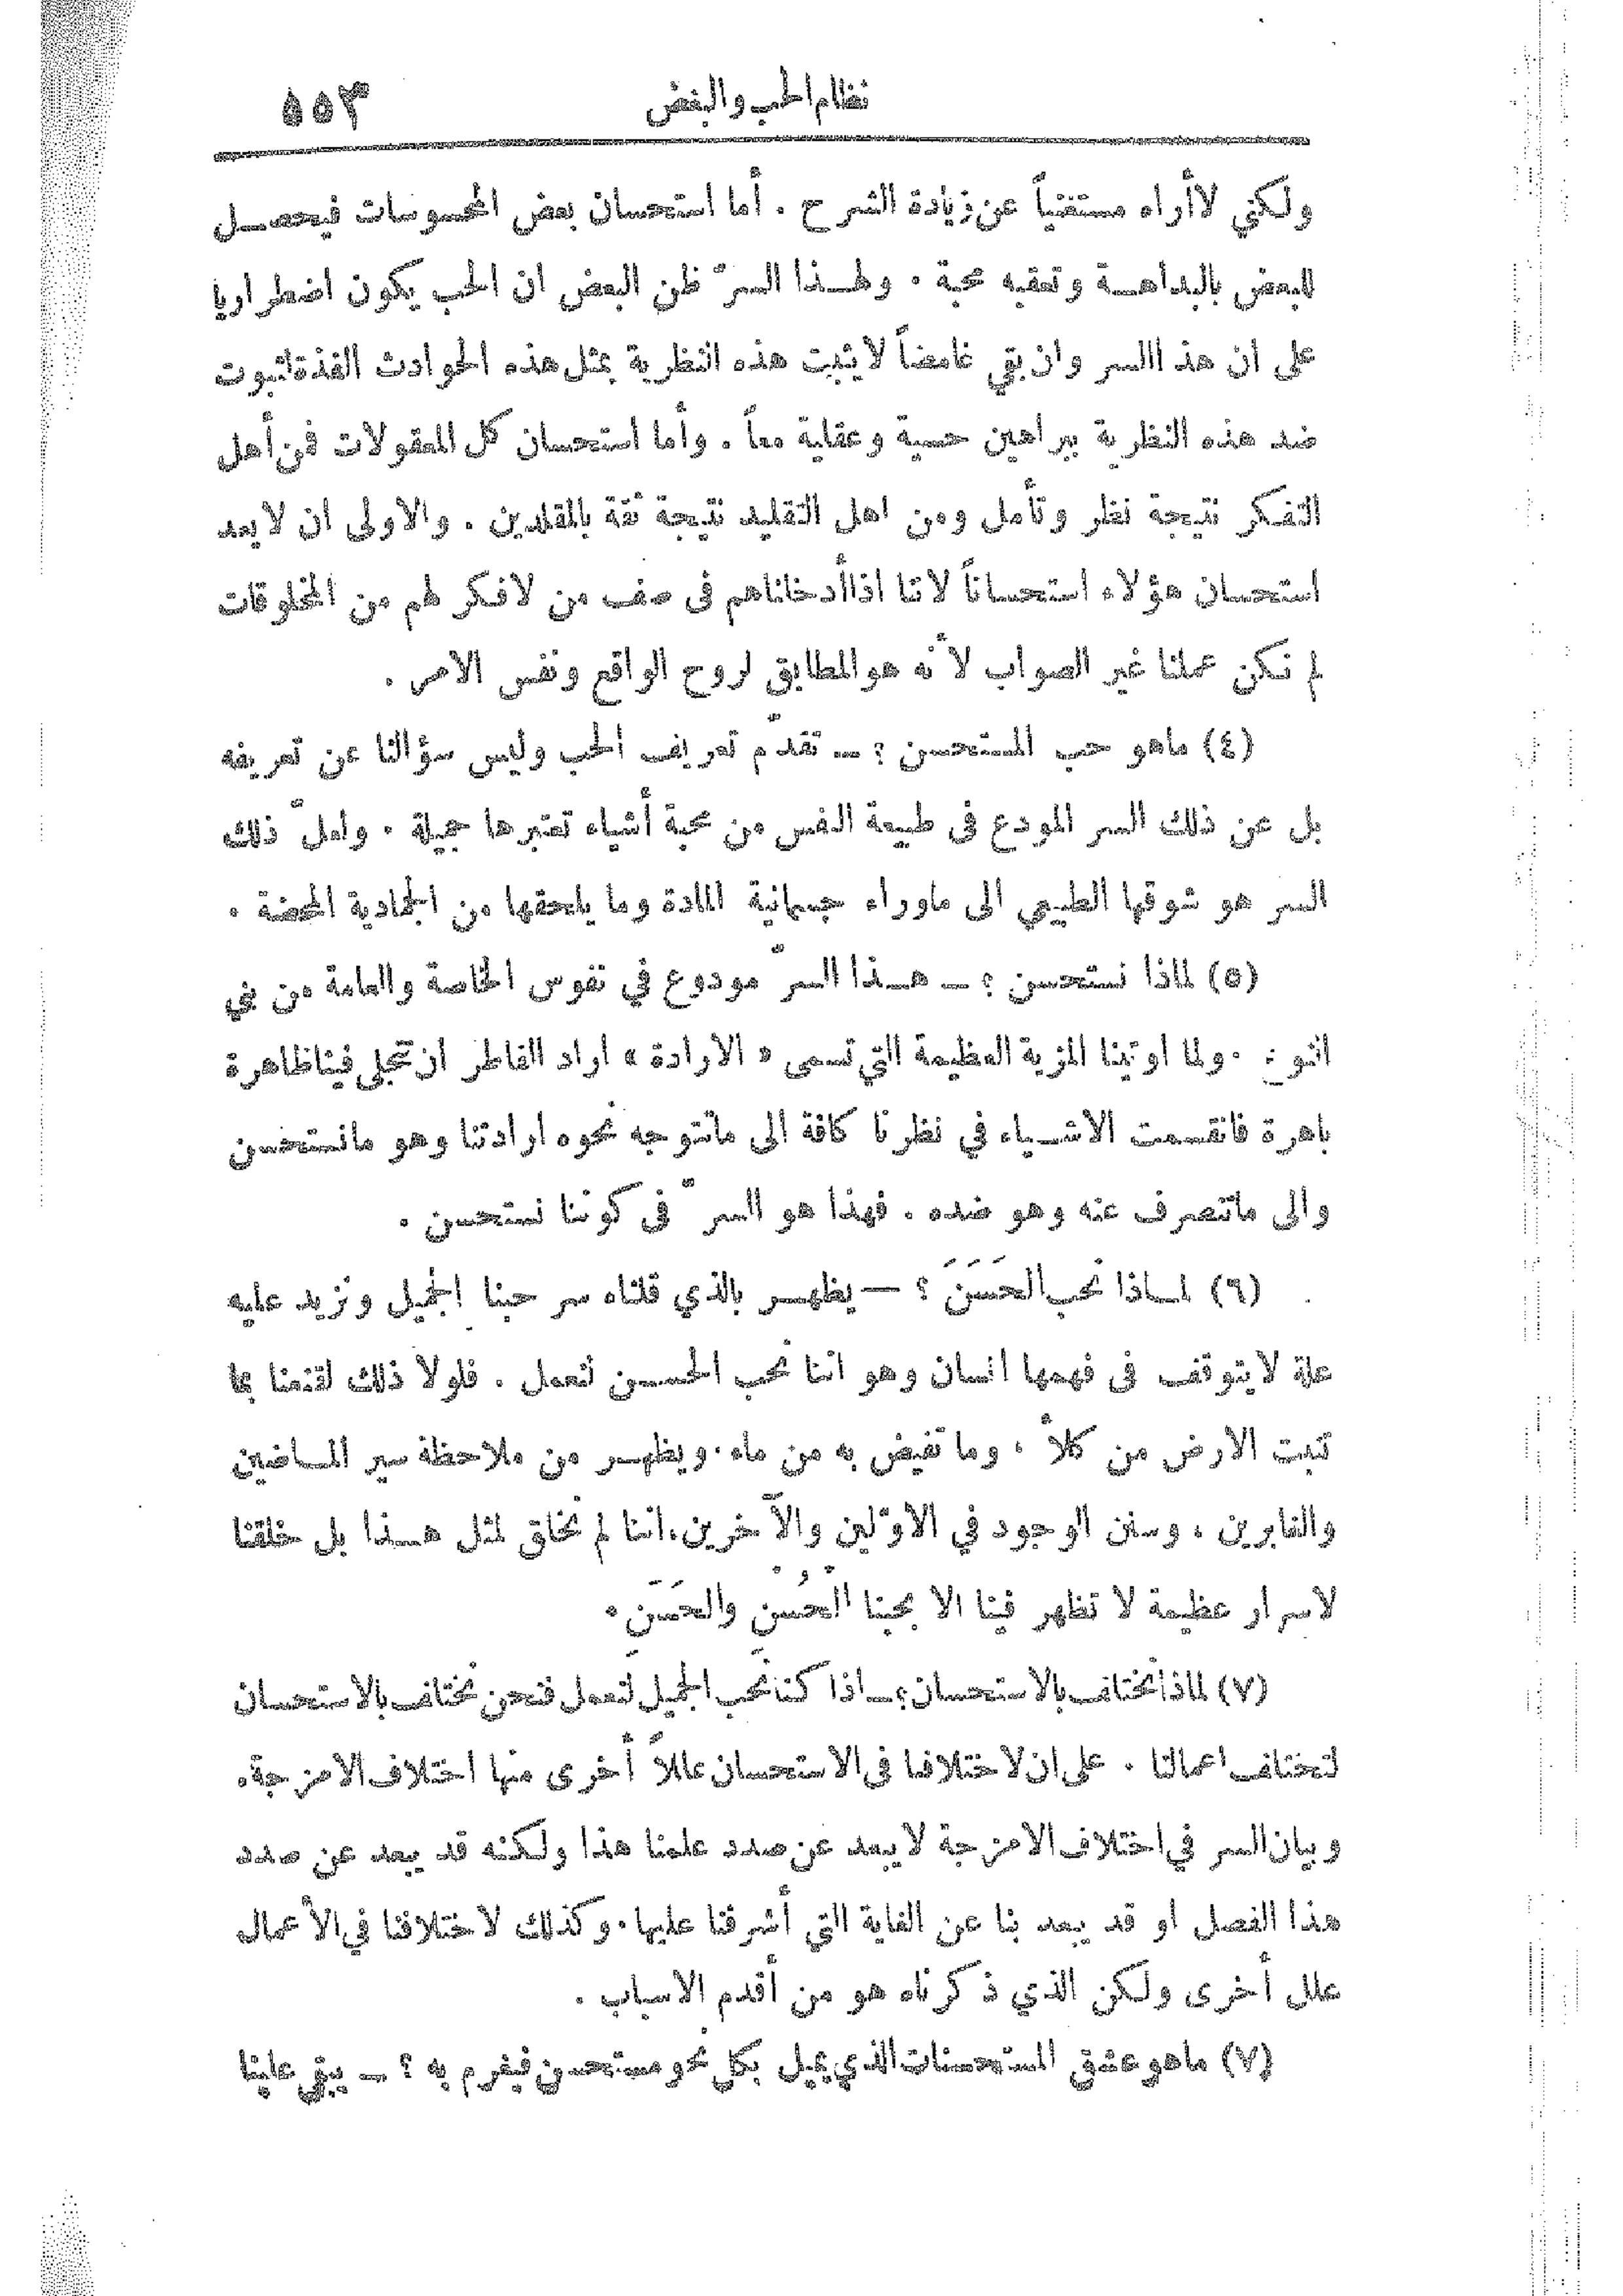 نظام الحب والبغض ٥٥٣
ولكني لا أراه مستغنياً عن زيادة الشرح . أما استحسان بعض المحسوسات فيحصل
للبعض بالبداهة وتعقبه محبة . ولهذا السرّ ظن البعض ان الحب يكون اضطراريا
على ان هذا السر وان بقي غامضاً لا يثبت هذه النظرية بمثل هذه الحوادث الفذة لثبوت
ضد هذه النظرية ببراهين حسية وعقلية معاً . وأما استحسان كل المعقولات فمن أهل
التفكر نتيجة نظر وتأمل ومن اهل التقليد نتيجة ثقة بالمقلدين . والاولى ان لا يعد
استحسان هؤلاء استحساناً لاننا اذا أدخلناهم في صف من لا فكر لهم من المخلوقات
لم نكن عملنا غير الصواب لأنه هو المطابق لروح الواقع ونفس الامر .
(٤) ماهو حب المستحسن ؟ — تقدّم تعريف الحب وليس سؤالنا عن تعريفه
بل عن ذلك السر المودع في طبيعة النفس من محبة أشياء تعتبرها جميلة . ولعلّ ذلك
السر هو شوقها الطبيعي الى ماوراء جسمانية المادة وما يلحقها من الجمادية المحضة .
(٥) لماذا نستحسن ؟ — هذا السرّ مودوع في نفوس الخاصة والعامة من بني
النوع . ولما اوتينا المزية العظيمة التي تسمى « الارادة » اراد الفاطر ان تتجلى فينا ظاهرة
باهرة فانقسمت الاشياء في نظرنا كافة الى ماتتوجه نحوه ارادتنا وهو مانستحسن
والى ماتنصرف عنه وهو ضده . فهذا هو السرّ في كوننا نستحسن .
(٦) لماذا نحب الحَسَنَ ؟ — يظهر بالذي قلناه سر حبنا الجميل ونزيد عليه
علة لا يتوقف في فهمها انسان وهو اننا نحب الحسن لنعمل . فلولا ذلك لقنعنا بما
تنبت الارض من كلأ ، وما تفيض به من ماء . ويظهر من ملاحظة سير الماضين
والغابرين ، وسنن الوجود في الاوّلين والآخرين ، اننا لم نخلق لمثل هذا بل خلقنا
لاسرار عظيمة لا تظهر فينا الا بحبنا الْحُسْنَ والحَسَنَ .
(٧) لماذا نختلف بالاستحسان ؟ — اذا كنا نحب الجميل لنعمل فنحن نختلف بالاستحسان
لتختلف اعمالنا . على ان لاختلافنا في الاستحسان عللاً أخرى منها اختلاف الامزجة .
وبيان السر في اختلاف الامزجة لا يبعد عن صدد علمنا هذا ولكنه قد يبعد عن صدد
هذا الفصل او قد يبعد بنا عن الغاية التي أشرفنا عليها . وكذلك لاختلافنا في الأعمال
علل أخرى ولكن الذي ذكرناه هو من أقدم الاسباب .
(٧) ماهو عشق المستحسنات الذي يميل بكل نحو مستحسن فيغرم به ؟ — يبقى علينا